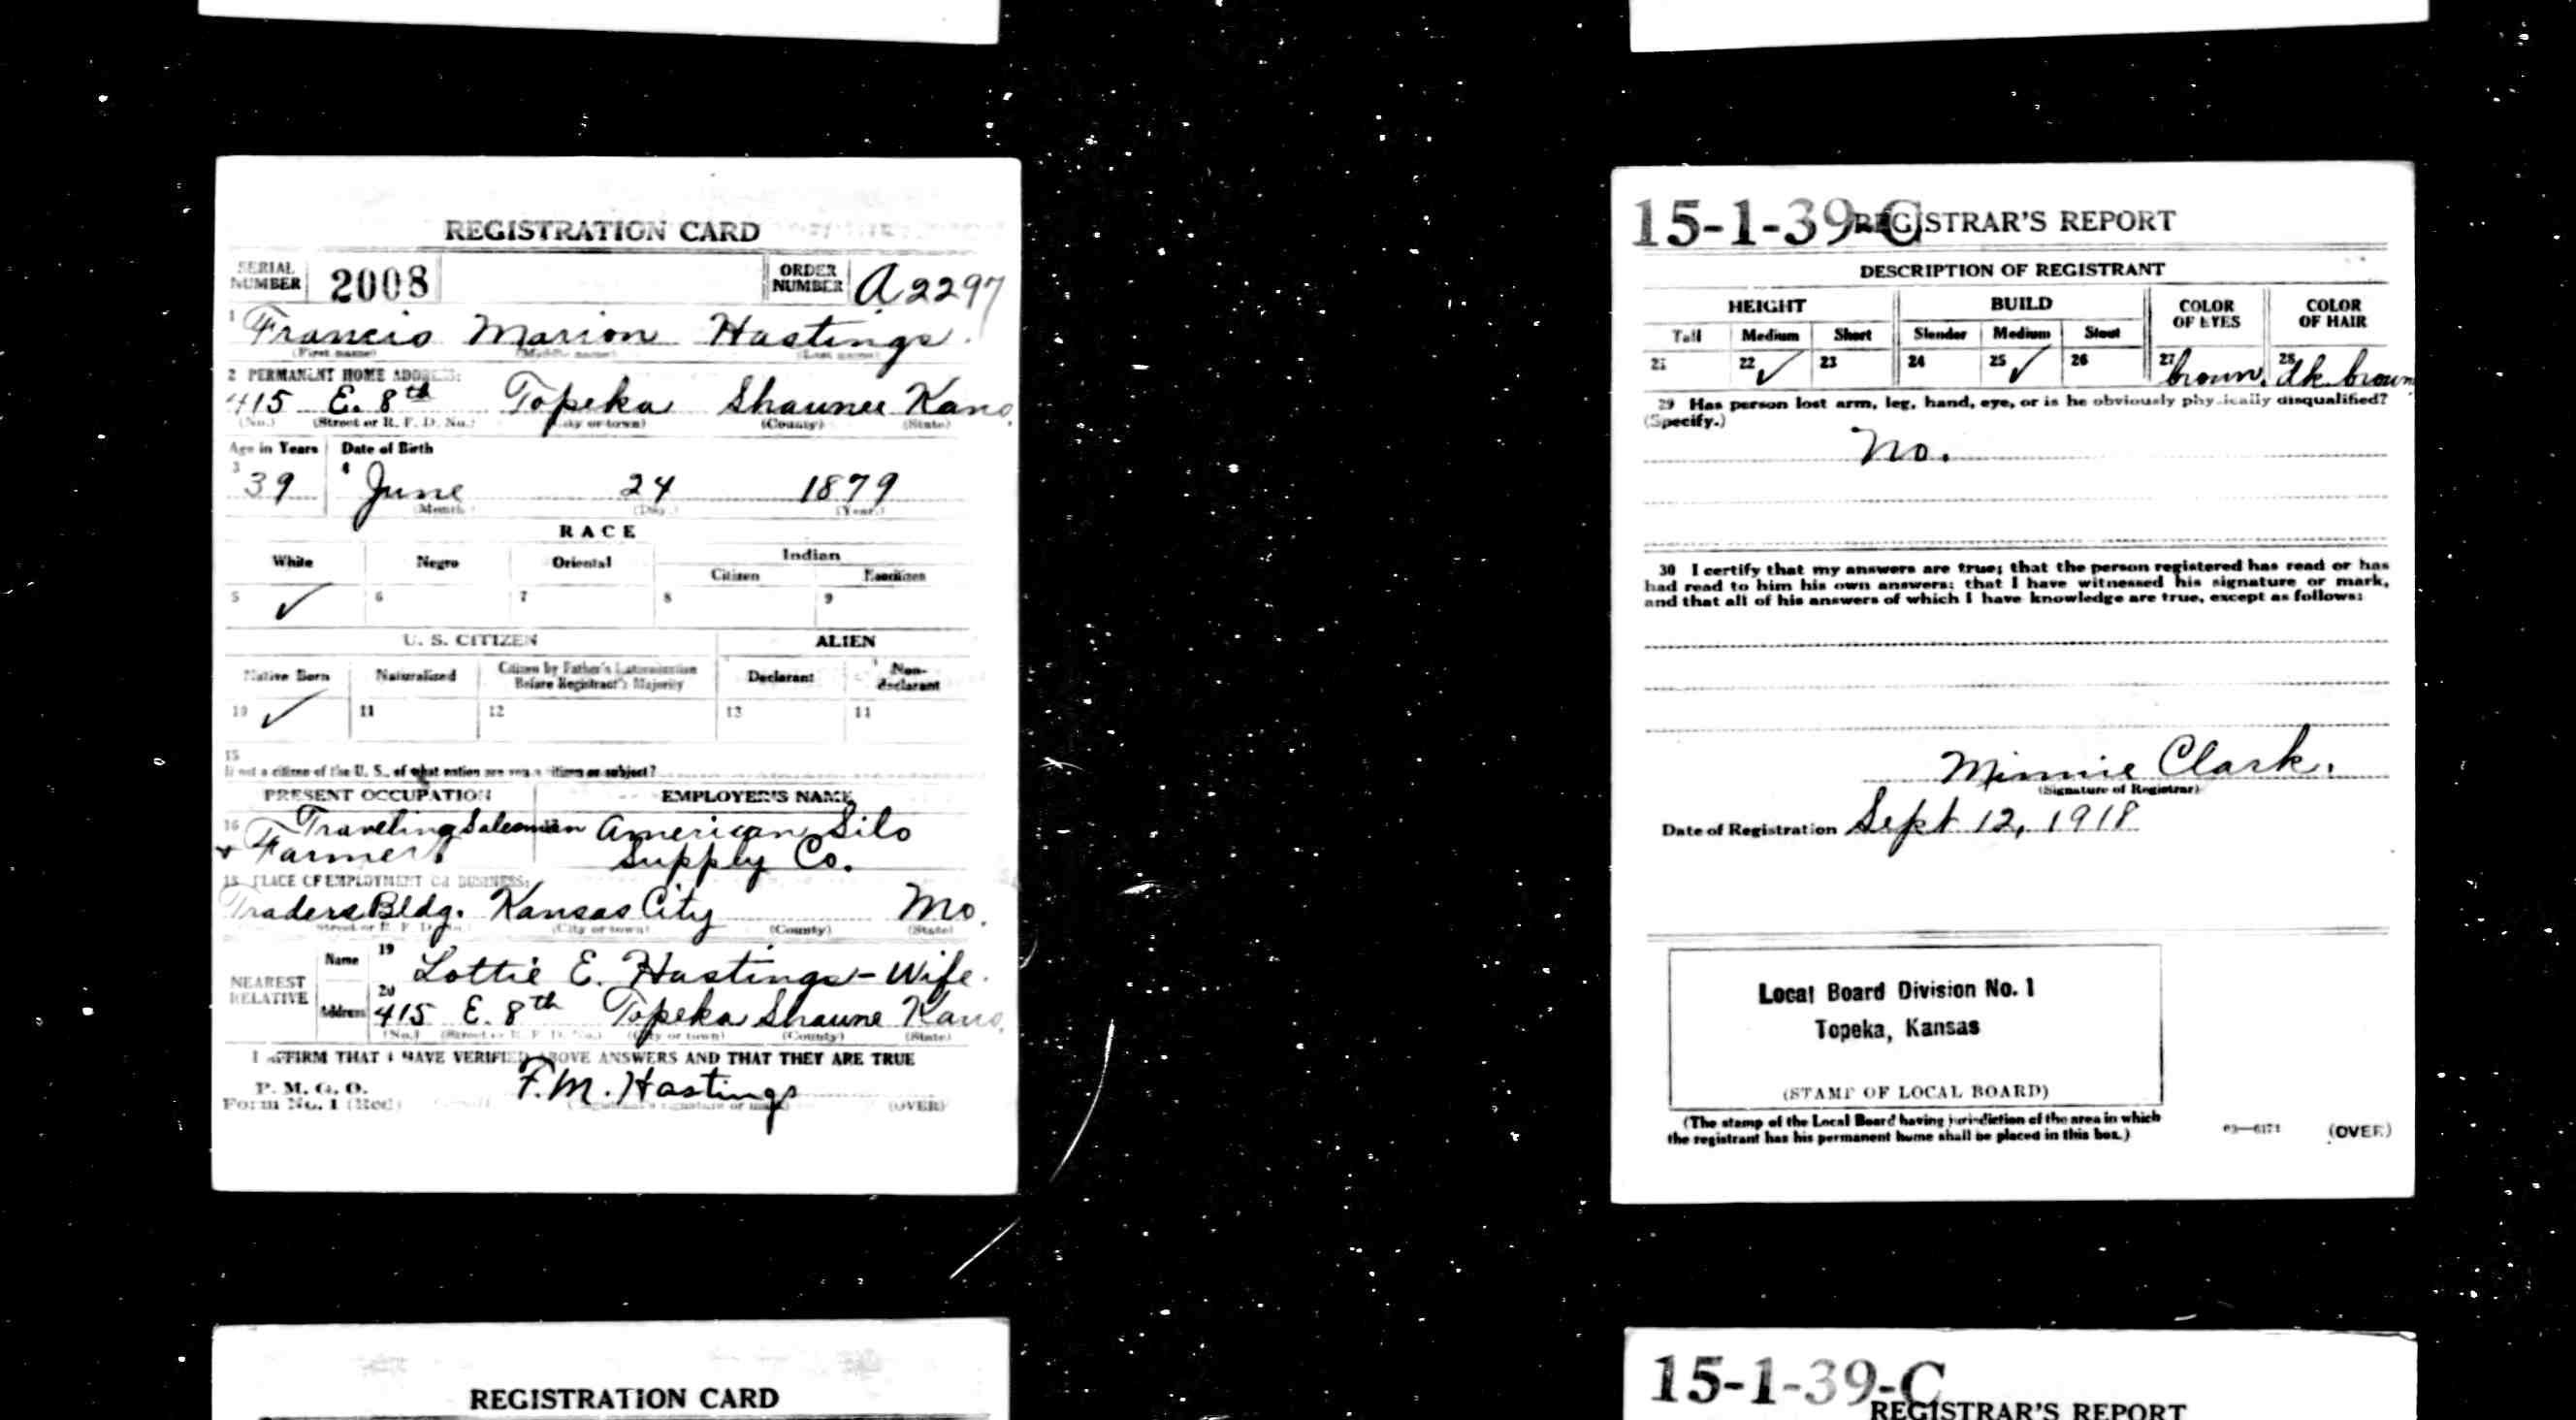 REGISTRATION CARD
SERIAL NUMBER 2008 ORDER NUMBER A2297
1 Francis Marion Hastings.
(First name) (Middle name) (Last name)
2 PERMANENT HOME ADDRESS:
415 E. 8th Topeka Shawnee Kans.
(No.) (Street or R. F. D. No.) (City or town) (County) (State)
Age in Years Date of Birth
3 39 4 June 24 1879
(Month.) (Day.) (Year.)
RACE
White Negro Oriental Indian
Citizen Noncitizen
5 ✓ 6 7 8 9
U. S. CITIZEN ALIEN
Native Born Naturalized Citizen by Father's Naturalization Before Registrant's Majority Declarant Non-declarant
10 ✓ 11 12 13 14
15
If not a citizen of the U. S., of what nation are you a citizen or subject?
PRESENT OCCUPATION EMPLOYER'S NAME
16 Traveling Salesman American Silo
+ Farmer. Supply Co.
18 PLACE OF EMPLOYMENT OR BUSINESS:
Traders Bldg. Kansas City Mo.
(Street or R. F. D. No.) (City or town) (County) (State)
NEAREST RELATIVE Name 19 Lottie E. Hastings - Wife.
Address 20 415 E. 8th Topeka Shawne Kans.
(No.) (Street or R. F. D. No.) (City or town) (County) (State)
I AFFIRM THAT I HAVE VERIFIED ABOVE ANSWERS AND THAT THEY ARE TRUE
P. M. G. O.
Form No. 1 (Red) F. M. Hastings
(Registrant's signature or mark) (OVER)
15-1-39-C REGISTRAR'S REPORT
DESCRIPTION OF REGISTRANT
HEIGHT BUILD COLOR OF EYES COLOR OF HAIR
Tall Medium Short Slender Medium Stout
21 22 ✓ 23 24 25 ✓ 26 27 brown. 28 dk brown
29 Has person lost arm, leg, hand, eye, or is he obviously physically disqualified?
(Specify.)
No.
30 I certify that my answers are true; that the person registered has read or has
had read to him his own answers; that I have witnessed his signature or mark,
and that all of his answers of which I have knowledge are true, except as follows:
Minnie Clark.
(Signature of Registrar)
Date of Registration Sept 12, 1918
Local Board Division No. 1
Topeka, Kansas
(STAMP OF LOCAL BOARD)
(The stamp of the Local Board having jurisdiction of the area in which
the registrant has his permanent home shall be placed in this box.)
03—6171 (OVER)
REGISTRATION CARD
15-1-39-C
REGISTRAR'S REPORT